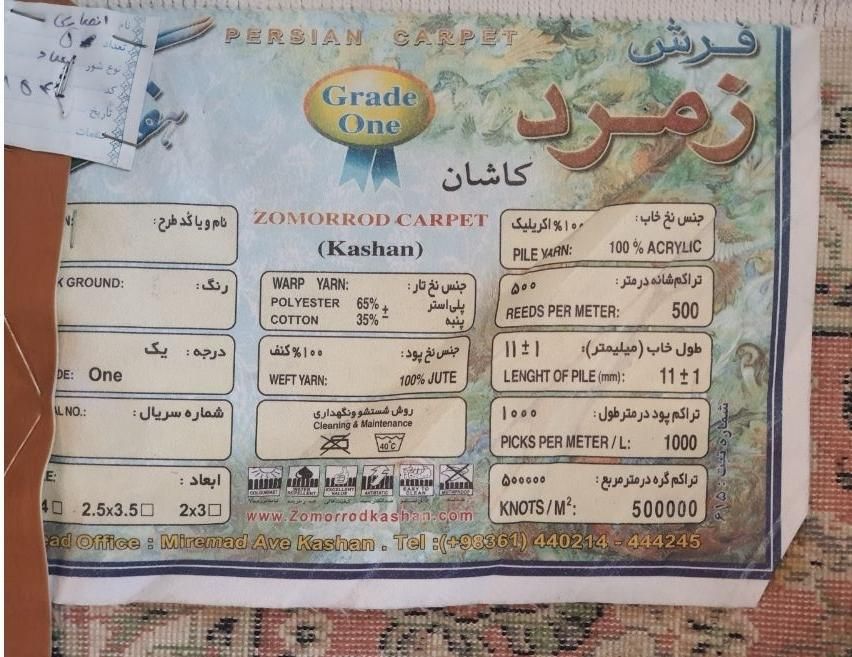 انصاری
نام
تعداد
نوع شور
کد
تاریخ
PERSIAN CARPET
فرش
زمرد
کاشان
Grade
One
ZOMORROD CARPET
(Kashan)
نام و یا کد طرح:
K GROUND:
رنگ:
درجه: یک
DE: One
AL NO.:
شماره سریال:
ابعاد:
E:
4□ 2.5x3.5□ 2x3□
WARP YARN: جنس نخ تار:
POLYESTER 65% ± پلی استر
COTTON 35% پنبه
جنس نخ پود: ۱۰۰% کنف
WEFT YARN: 100% JUTE
روش شستشو و نگهداری
Cleaning & Maintenance
40°C
COLOURFAST WATER REPELLENT EXCELLENT VALUE ANTISTATIC EASY TO CLEAN MOTHPROOF
www.Zomorrodkashan.com
جنس نخ خاب: ۱۰۰% اکریلیک
PILE YARN: 100 % ACRYLIC
تراکم شانه در متر: ۵۰۰
REEDS PER METER: 500
طول خاب (میلیمتر): ۱۱ ± ۱
LENGHT OF PILE (mm): 11 ± 1
تراکم پود در متر طول: ۱۰۰۰
PICKS PER METER / L: 1000
تراکم گره در متر مربع: ۵۰۰۰۰۰
KNOTS / M²: 500000
شماره ثبت: ۶۱۵۰
ead Office : Miremad Ave Kashan . Tel :(+98361) 440214 - 444245